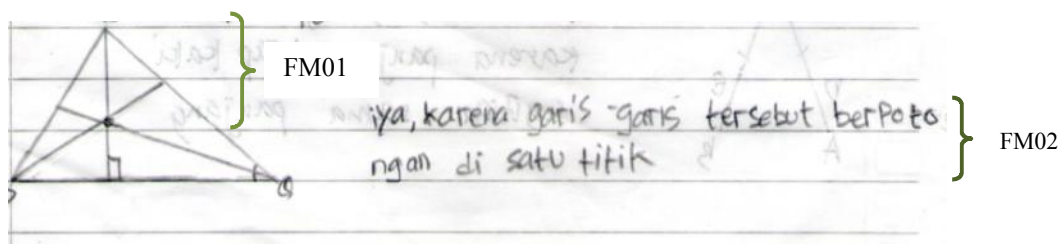 FM01
iya, karena garis-garis tersebut berpoto
ngan di satu titik
FM02
Q